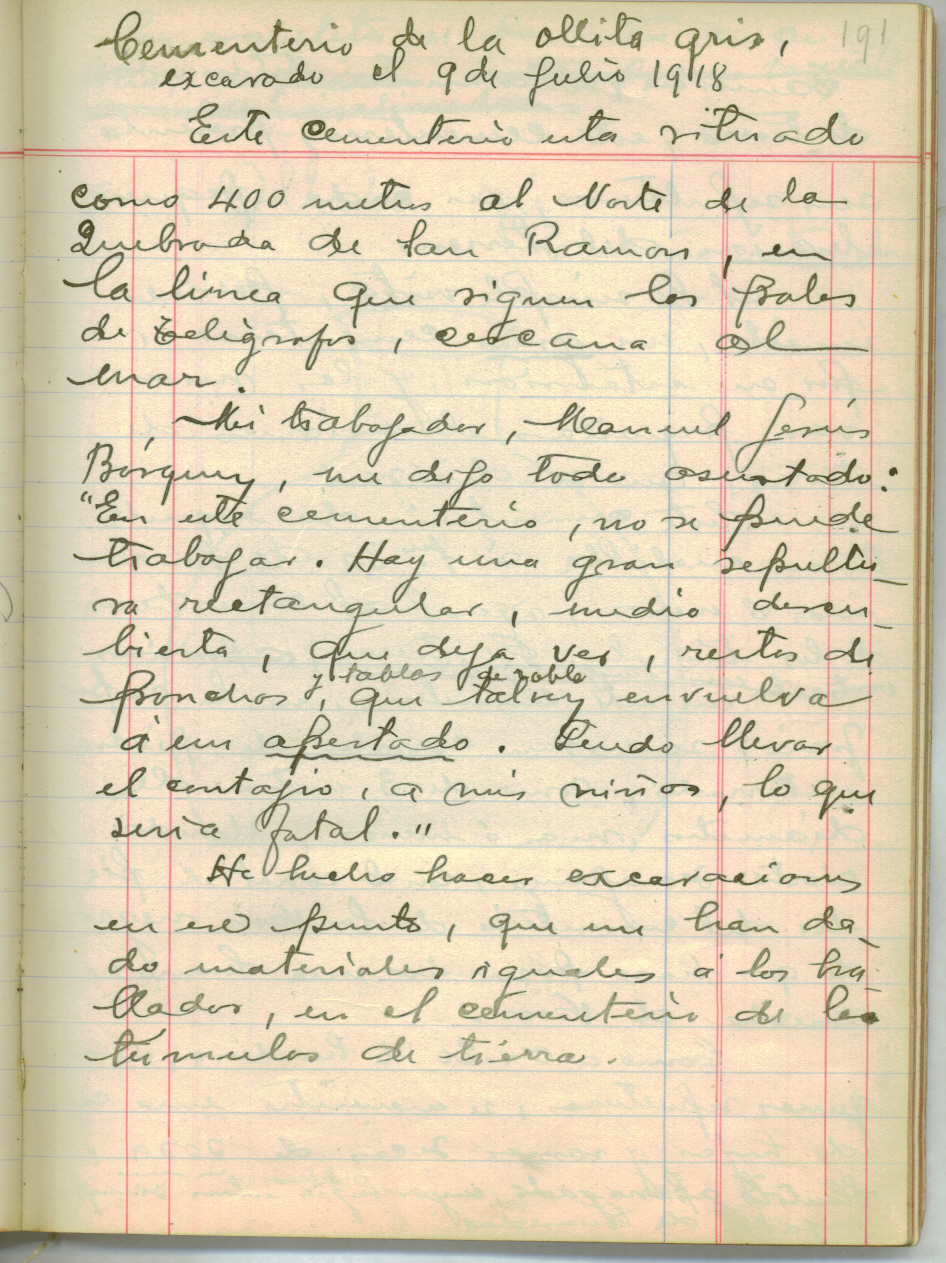 191
Cementerio de la ollita gris,
excavado el 9 de Julio 1918
Este cementerio esta situado
como 400 metros al Norte de la
Quebrada de San Ramon, en
la linea que siguen los postes
de telégrafos, cercana al
mar.
Mi trabajador, Manuel Jesús
Bórquez, me dijo todo asustado:
"En este cementerio, no se puede
trabajar. Hay una gran sepultu-
ra rectangular, medio descu-
bierta, que deja ver, restos de
y tablas de roble
ponchos, que talvez envuelva
á un apestado. Puedo llevar
el contajio, a mis niños, lo que
seria fatal."
He hecho hacer excavaciones
en ese punto, que me han da-
do materiales iguales á los ha-
llados, en el cementerio de los
túmulos de tierra.